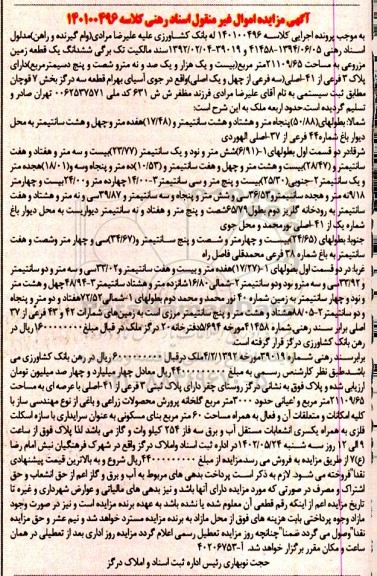 آگهی مزایده اموال غیر منقول اسناد رهنی کلاسه ۱۴۰۱۰۰۴۹۶
به موجب پرونده اجرایی کلاسه ۱۴۰۱۰۰۴۹۶ له بانک کشاورزی علیه علیرضا مرادی(وام گیرنده و راهن)مدلول
اسناد رهنی ۱۳۹۴/۰۶/۰۵-۴۱۴۵۸ و ۳۹۰۱۹-۱۳۹۲/۰۲/۰۴ سند مالکیت تک برگی ششدانگ یک قطعه زمین
مزروعی به مساحت ۲۱۱۰۹/۶۵ متر مربع(بیست و یک هزار و یک صد و نه مترو شصت و پنج دسیمترمربع)دارای
پلاک ۳ فرعی از ۴۱-اصلی(سه فرعی از چهل و یک اصلی)واقع در جوی آسیای بهرام قطعه سه درگز بخش ۷ قوچان
مطابق ثبت سیستمی به نام آقای علیرضا مرادی فرزند مظفر ش ش ۶۳۱ کد ملی ۰۰۶۲۵۳۷۵۷۱ تهران صادر و
تسلیم گردیده است.حدود اربعه ملک به این شرح است:
شمالا: بطولهای(۵۰/۸۸)پنجاه متر و هشتاد و هشت سانتیمتر و (۱۷/۴۸)هفده متر و چهل و هشت سانتیمتر به محل
دیوار باغ شماره ۴۴ فرعی از ۳۷-اصلی الهوردی
شرقا:در دو قسمت اول بطولهای ۱-(۶/۹۱)شش متر و نود و یک سانتیمتر (۲۳/۷۷)بیست و سه متر و هفتاد و هفت
سانتیمتر (۲۸/۴۷)بیست و هشت متر و چهل و هفت سانتیمتر و (۱۰/۵۳)ده متر و پنجاه وسه و(۱۸/۰۱)هجده متر
و یک سانتیمتر ۲-جنوبی(۲۵/۳۰)بیست و پنج متر و سی سانتیمتر ۳-۱۴/۰۰چهارده متر و ۲۴/۰۰ بیست و چهارمتر
۹/۱۸ نه متر و هجده سانتیمترو ۳۶/۵۳سی و شش متر و پنجاه و سه سانتیمتر و ۳۹/۸۷سی و نه متر و هشتاد و هفت
سانتیمتر به رودخانه گلریز دوم بطول ۶۵/۷۶شصت و پنج متر و هفتاد و نه سانتیمتر دیواریست به محل دیوار باغ
شماره یک از ۴۱-اصلی نورمحمد و محل جوی
جنوبا: بطولهای (۲۴/۶۵)بیست و چهارمتر و شصت و پنج سانتیمتر و(۳۴/۶۷)سی و چهار متر وشصت و هفت
سانتیمتر به باغ شماره ۲۸ فرعی محمدقلی فاصل راه
غربا:در دو قسمت اول بطولهای ۱-(۱۷/۲۷)هفده متر و بیست و هفت سانتیمتر و ۳۳/۰۲سی و سه متر و دو سانتیمتر
و ۳۳/۹۲ سی و سه مترو نود ودو سانتیمتر ۲-شمالی ۱۶/۸۰شانزده متر و هشتاد سانتیمتر ۳-۴۸/۹۴ چهل و هشت متر
و نود و چهار سانتیمتر به زمین شماره ۴۰ نور محمد و محمد دوم بطولهای ۱-شمالی ۷۲/۵۲هفتاد و دو متر و پنجاه
و دو سانتیمتر ۲-۸۸/۰۵هشتاد و هشت متر و پنج سانتیمتر مرزی است به زمین‌های شمارات ۴۲ و ۴۳ فرعی از ۳۷
اصلی برابر سند رهنی,شماره ۴۱۴۵۸ مورخه ۵/۶۹۴دفترخانه ۲۰ درگز ملک در قبال مبلغ ۱۶۰۰۰۰۰۰۰۰ریال در
رهن بانک کشاورزی درگز قرار گرفته است.
برابرسند رهنی شماره ۳۹۰۱۹مورخه ۴/۲/۱۳۹۲ملک درقبال ۶۰۰۰۰۰۰۰۰ ریال در رهن بانک کشاورزی می
باشد.طبق نظر کارشناس رسمی به مبلغ ۴۴۰۰۰۰۰۰۰۰۰ ریال معادل چهار میلیارد و چهار صد میلیون تومان
ارزیابی شده و پلاک فوق به نشانی درگز روستای چقر دارای پلاک ثبتی ۳ فرعی از ۴۱-اصلی با عرصه ای به مساحت
۲۱۱۰۹/۶۵ متر مربع و اعیانی حدود ۳۰۰۰متر مربع گلخانه پرورش محصولات زراعی و باغی از نوع مهندسی ساز با
کلیه امکانات و متعلقات آن و فعال به همراه مساحت ۶۰ متر مربع بنای مسکونی به عنوان سرایداری با سازه اسکلت
فلزی به همراه یکسری انشعابات مستقل آب و برق سه فاز ۲۵۴ کیلو وات و گاز می باشد لذا پلاک فوق از ساعت
۹ الی ۱۲ روز سه شنبه ۱۴۰۲/۰۵/۲۴ در اداره ثبت اسناد واملاک درگز واقع در شهرک فرهنگیان نبش امام رضا
(ع) ۷ از طریق مزایده به فروش می رسد.مزایده از مبلغ ۴۴۰۰۰۰۰۰۰۰۰ریال شروع و به بالاترین قیمت پیشنهادی
نقدا"فروخته می شود. لازم به ذکر است پرداخت بدهی های مربوط به آب و برق و گاز اعم از حق انشعاب و حق
اشتراک و مصرف در صورتی که مورد مزایده دارای آنها باشد و نیز بدهی های مالیاتی و عوارض شهرداری و غیره تا
تاریخ مزایده اعم از اینکه رقم قطعی آن معلوم شده یا نشده باشد به عهده برنده مزایده است و نیز در صورت وجود
مازاد وجوه پرداختی بابت هزینه های فوق از محل مازاد به برنده مزایده مسترد خواهد شد و نیم عشر و حق مزایده
نقدا" وصول می گردد ضمنا" چنانچه روز مزایده تعطیل رسمی اعلام گردد مزایده روز اداری بعد از تعطیلی در همان
ساعت و مکان مقرر برگزار خواهد شد. آ-۴۰۲۰۶۷۵۳
حجت نوبهاری رئیس اداره ثبت اسناد و املاک درگز